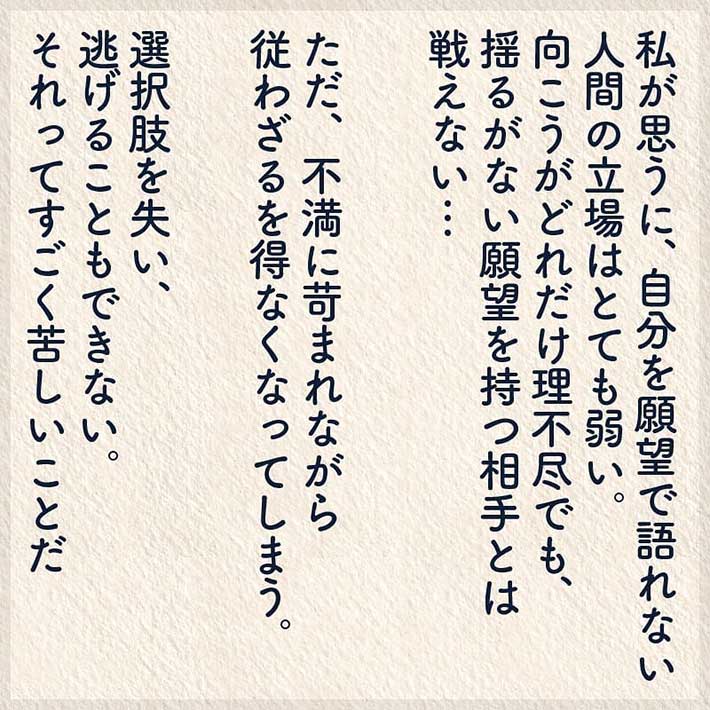 私が思うに、自分を願望で語れない
人間の立場はとても弱い。
向こうがどれだけ理不尽でも、
揺るがない願望を持つ相手とは
戦えない…
ただ、不満に苛まれながら
従わざるを得なくなってしまう。
選択肢を失い、
逃げることもできない。
それってすごく苦しいことだ